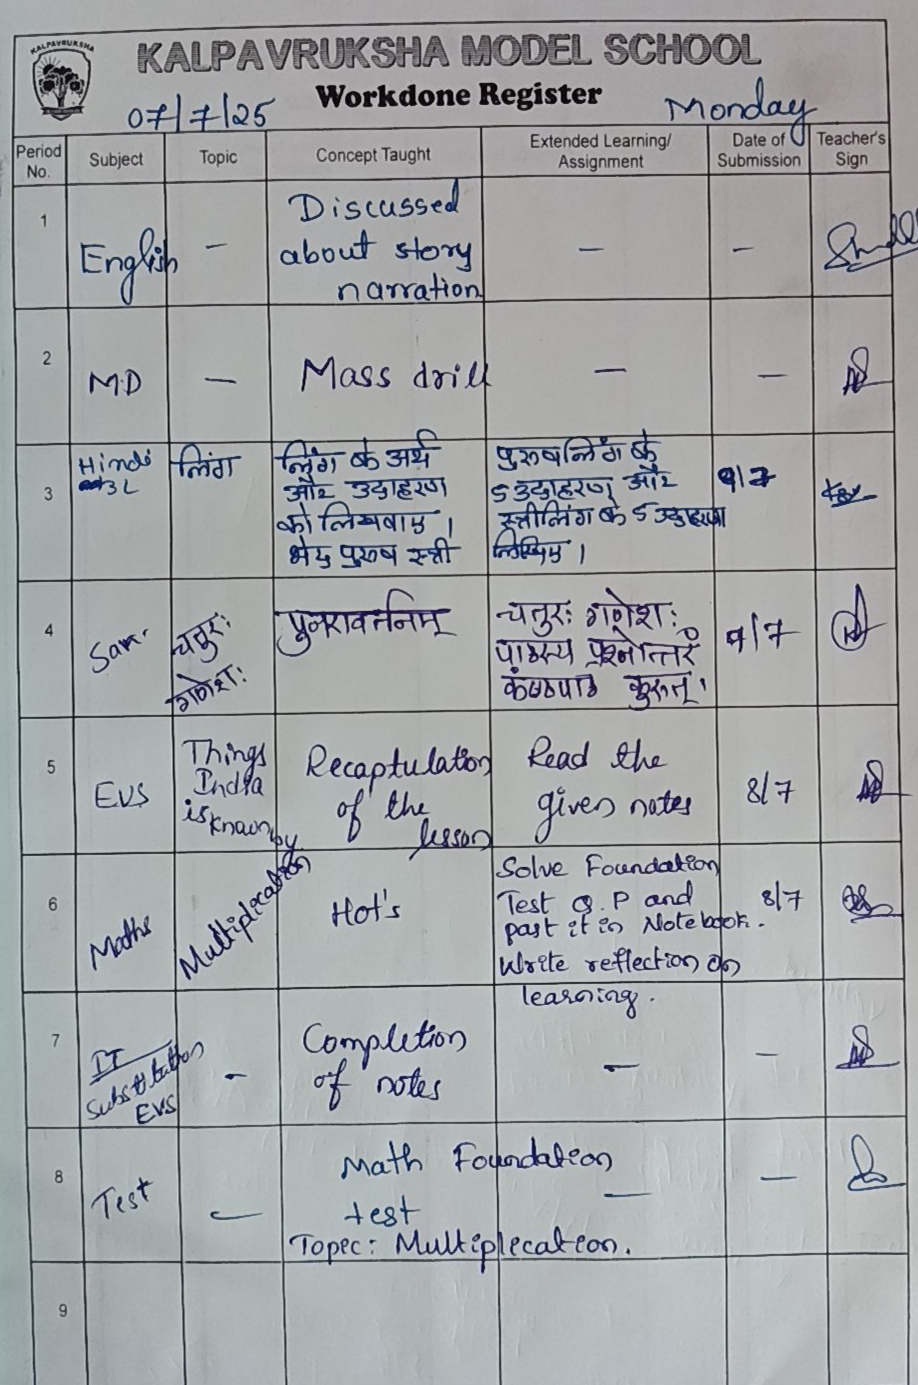 KALPAVRUKSHA
KALPAVRUKSHA MODEL SCHOOL
Workdone Register
07/7/25 Monday
Period No. Subject Topic Concept Taught Extended Learning/ Assignment Date of Submission Teacher's Sign
1 English - Discussed about story narration - -
2 M.D - Mass drill - -
3 Hindi 3L लिंग लिंग के अर्थ और उदाहरण को लिखवाए । भेद पुरुष स्त्री पुरुषलिंग के 5 उदाहरण और स्त्रीलिंग के 5 उदाहरण लिखिए । 9/7
4 San. चतुरः गणेशः पुनरावर्तनम् चतुरः गणेशः पाठस्य प्रश्नोत्तरं कंण्ठपाठ कुरुत्। 9/7
5 EVS Things India is known by Recaptulation of the lesson Read the given notes 8/7
6 Maths Multiplecation Hot's Solve Foundation Test Q.P and past it in Notebook. Write reflection on learning. 8/7
7 IT Substitution EVS - Completion of notes - -
8 Test - Math Foundation test Topec: Multiplecation. - -
9